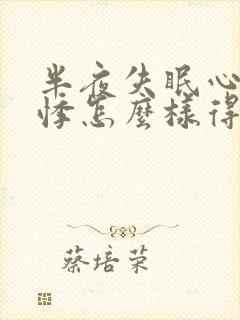 半夜失眠心
悸怎麼樣得
蔡培荣